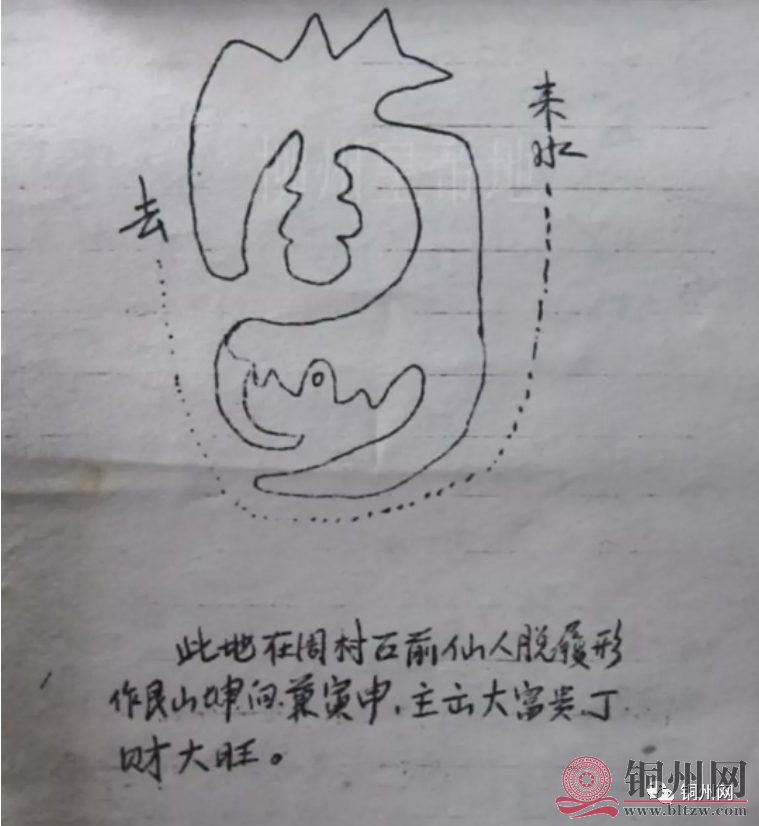 来水
去
此地在周村石前仙人脱履形
作艮山坤向兼寅申,主出大富贵丁
财大旺。
铜州网
铜州网
www.bltzw.com